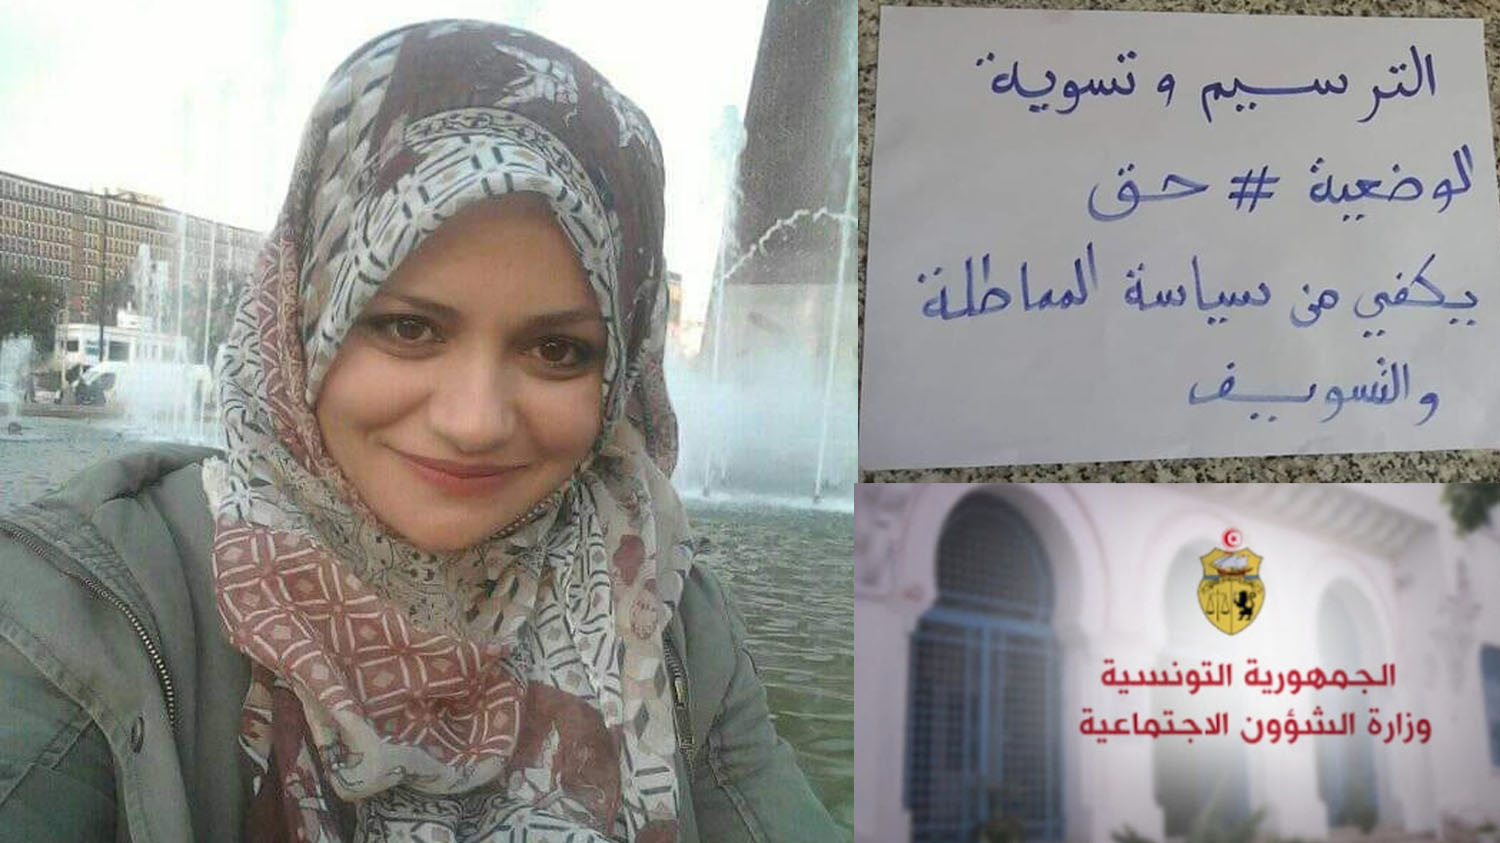 الترسيم و تسوية
الوضعية # حق
يكفي من سياسة المماطلة
والتسويف
الجمهورية التونسية
وزارة الشؤون الاجتماعية